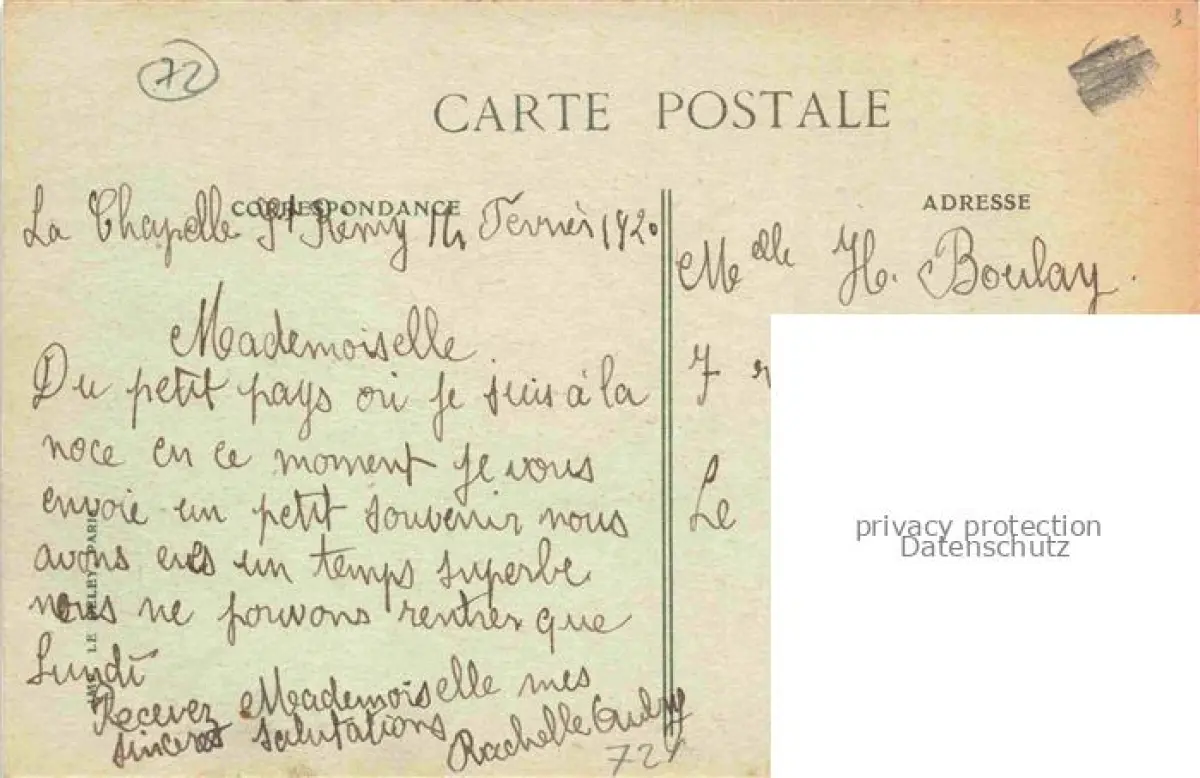 72
CARTE POSTALE
CORRESPONDANCE
ADRESSE
La Chapelle St Rémy Février 1920
Mademoiselle
Du petit pays où je suis à la
noce en ce moment je vous
envoie un petit souvenir nous
avons eus un temps superbe
nous ne pouvons rentrer que
Lundi
Recevez Mademoiselle mes
sinceres salutations
Rachelle
724
LE DELEY, PARIS
Melle H. Boulay.
7
Le
privacy protection
Datenschutz